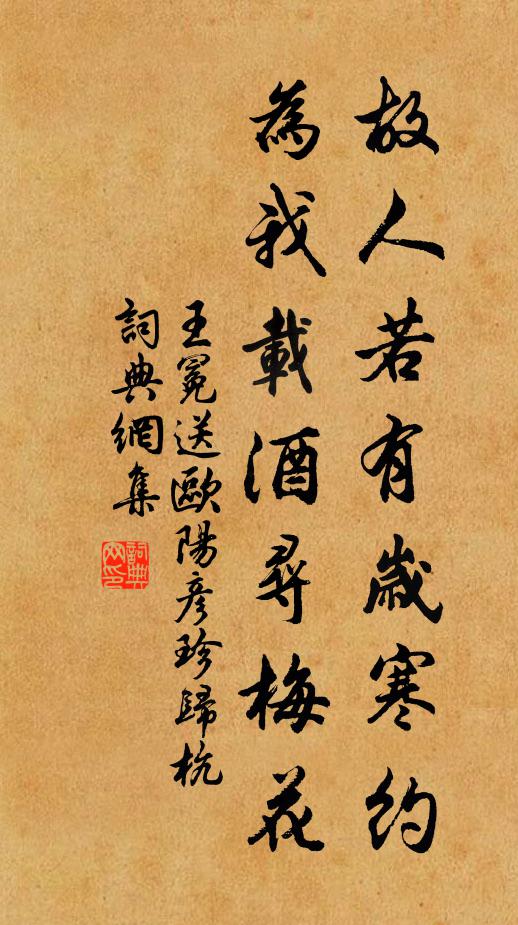 故人若有歲寒約
為我載酒尋梅花
王冕送歐陽彥珍歸杭
詞典網集
詞典网印